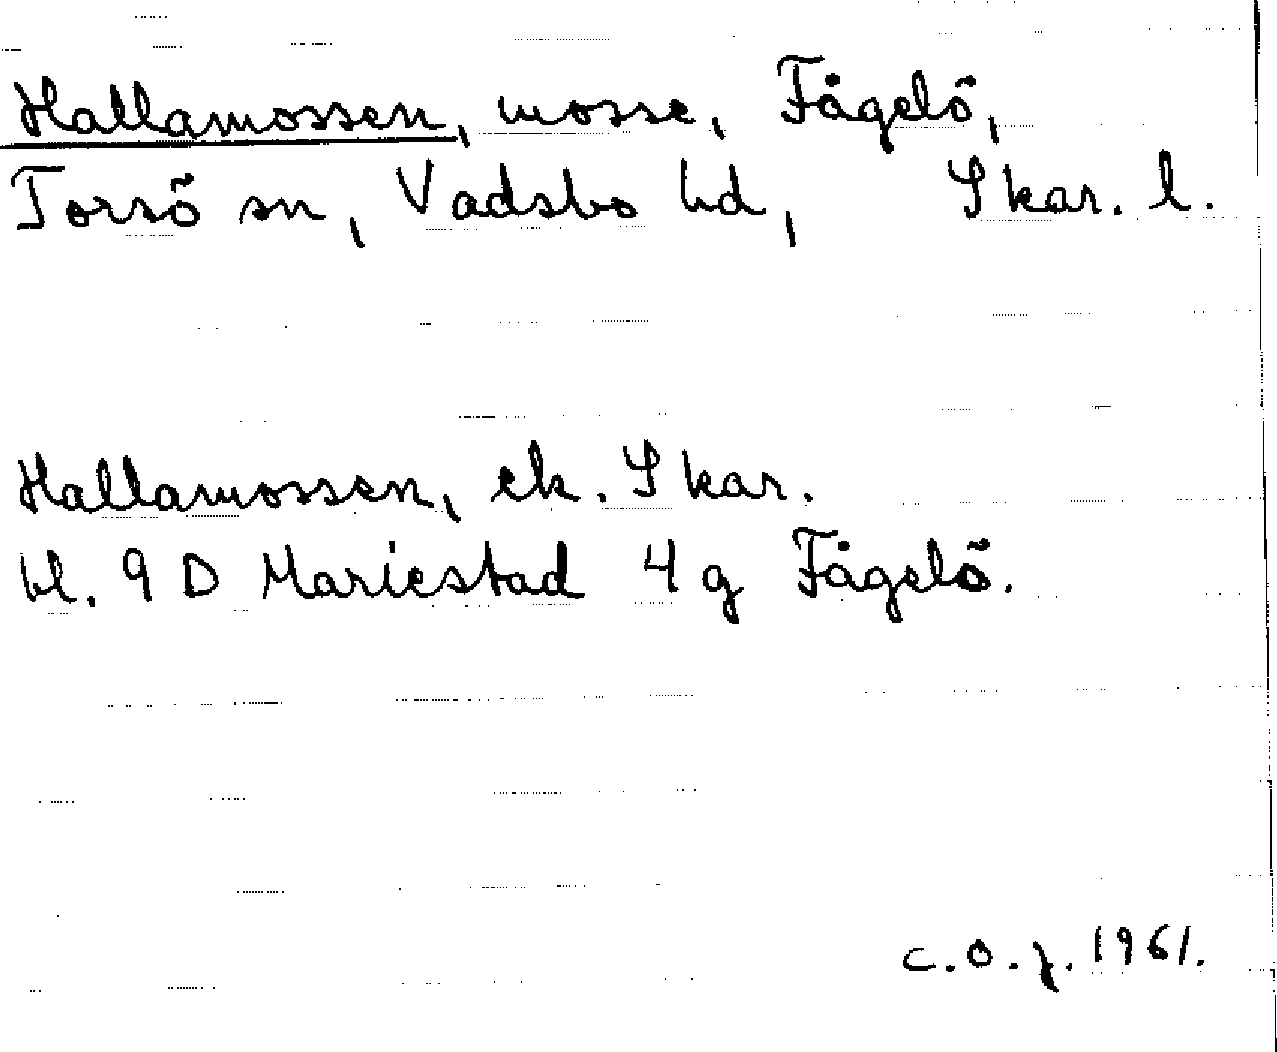 Hallamossen, mosse, Fågelö,
Torsö sn, Vadsbo hd, Skar. l.
Hallamossen, ek. Skar.
bl. 9 D Mariestad 4 g Fågelö.
c.o.z. 1961.